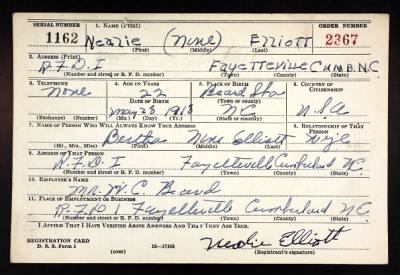 SERIAL NUMBER 1. NAME (Print) ORDER NUMBER
1162 Nealie (None) Elliott 2367
(First) (Middle) (Last)
2. ADDRESS (Print)
R.F.D. I Fayetteville Cumb. N.C
(Number and street or R. F. D. number) (Town) (County) (State)
3. TELEPHONE 4. AGE IN YEARS 5. PLACE OF BIRTH 6. COUNTRY OF CITIZENSHIP
None 22 Beard Sta
DATE OF BIRTH (Town or county)
May 28 1918 N.C. U.S.A
(Exchange) (Number) (Mo.) (Day) (Yr.) (State or country)
7. NAME OF PERSON WHO WILL ALWAYS KNOW YOUR ADDRESS 8. RELATIONSHIP OF THAT PERSON
Bertha None Elliott Wife
(Mr., Mrs., Miss) (First) (Middle) (Last)
9. ADDRESS OF THAT PERSON
R.F.D. I Fayetteville Cumberland N.C.
(Number and street or R. F. D. number) (Town) (County) (State)
10. EMPLOYER'S NAME
Mr. W. C. Beard
11. PLACE OF EMPLOYMENT OR BUSINESS
R.F.D 1 Fayetteville Cumberland N.C.
(Number and street or R. F. D. number) (Town) (County) (State)
I AFFIRM THAT I HAVE VERIFIED ABOVE ANSWERS AND THAT THEY ARE TRUE.
REGISTRATION CARD Nealie Elliott
D. S. S. Form 1 (over) 16—17105 (Registrant's signature)